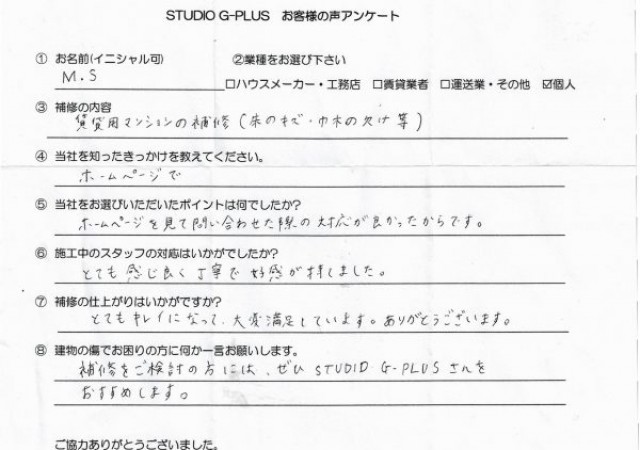 STUDIO G-PLUS お客様の声アンケート
① お名前(イニシャル可) ②業種をお選び下さい
M.S
□ハウスメーカー・工務店 □賃貸業者 □運送業・その他 ☑個人
③ 補修の内容
賃貸用マンションの補修(床のキズ・巾木の欠け等)
④ 当社を知ったきっかけを教えてください。
ホームページで
⑤ 当社をお選びいただいたポイントは何でしたか?
ホームページを見て問い合わせた際の対応が良かったからです。
⑥ 施工中のスタッフの対応はいかがでしたか?
とても感じ良く丁寧で好感が持てました。
⑦ 補修の仕上がりはいかがですか?
とてもキレイになって、大変満足しています。ありがとうございます。
⑧ 建物の傷でお困りの方に何か一言お願いします。
補修をご検討の方には、ぜひ STUDIO G-PLUS さんを
おすすめします。
ご協力ありがとうございました。